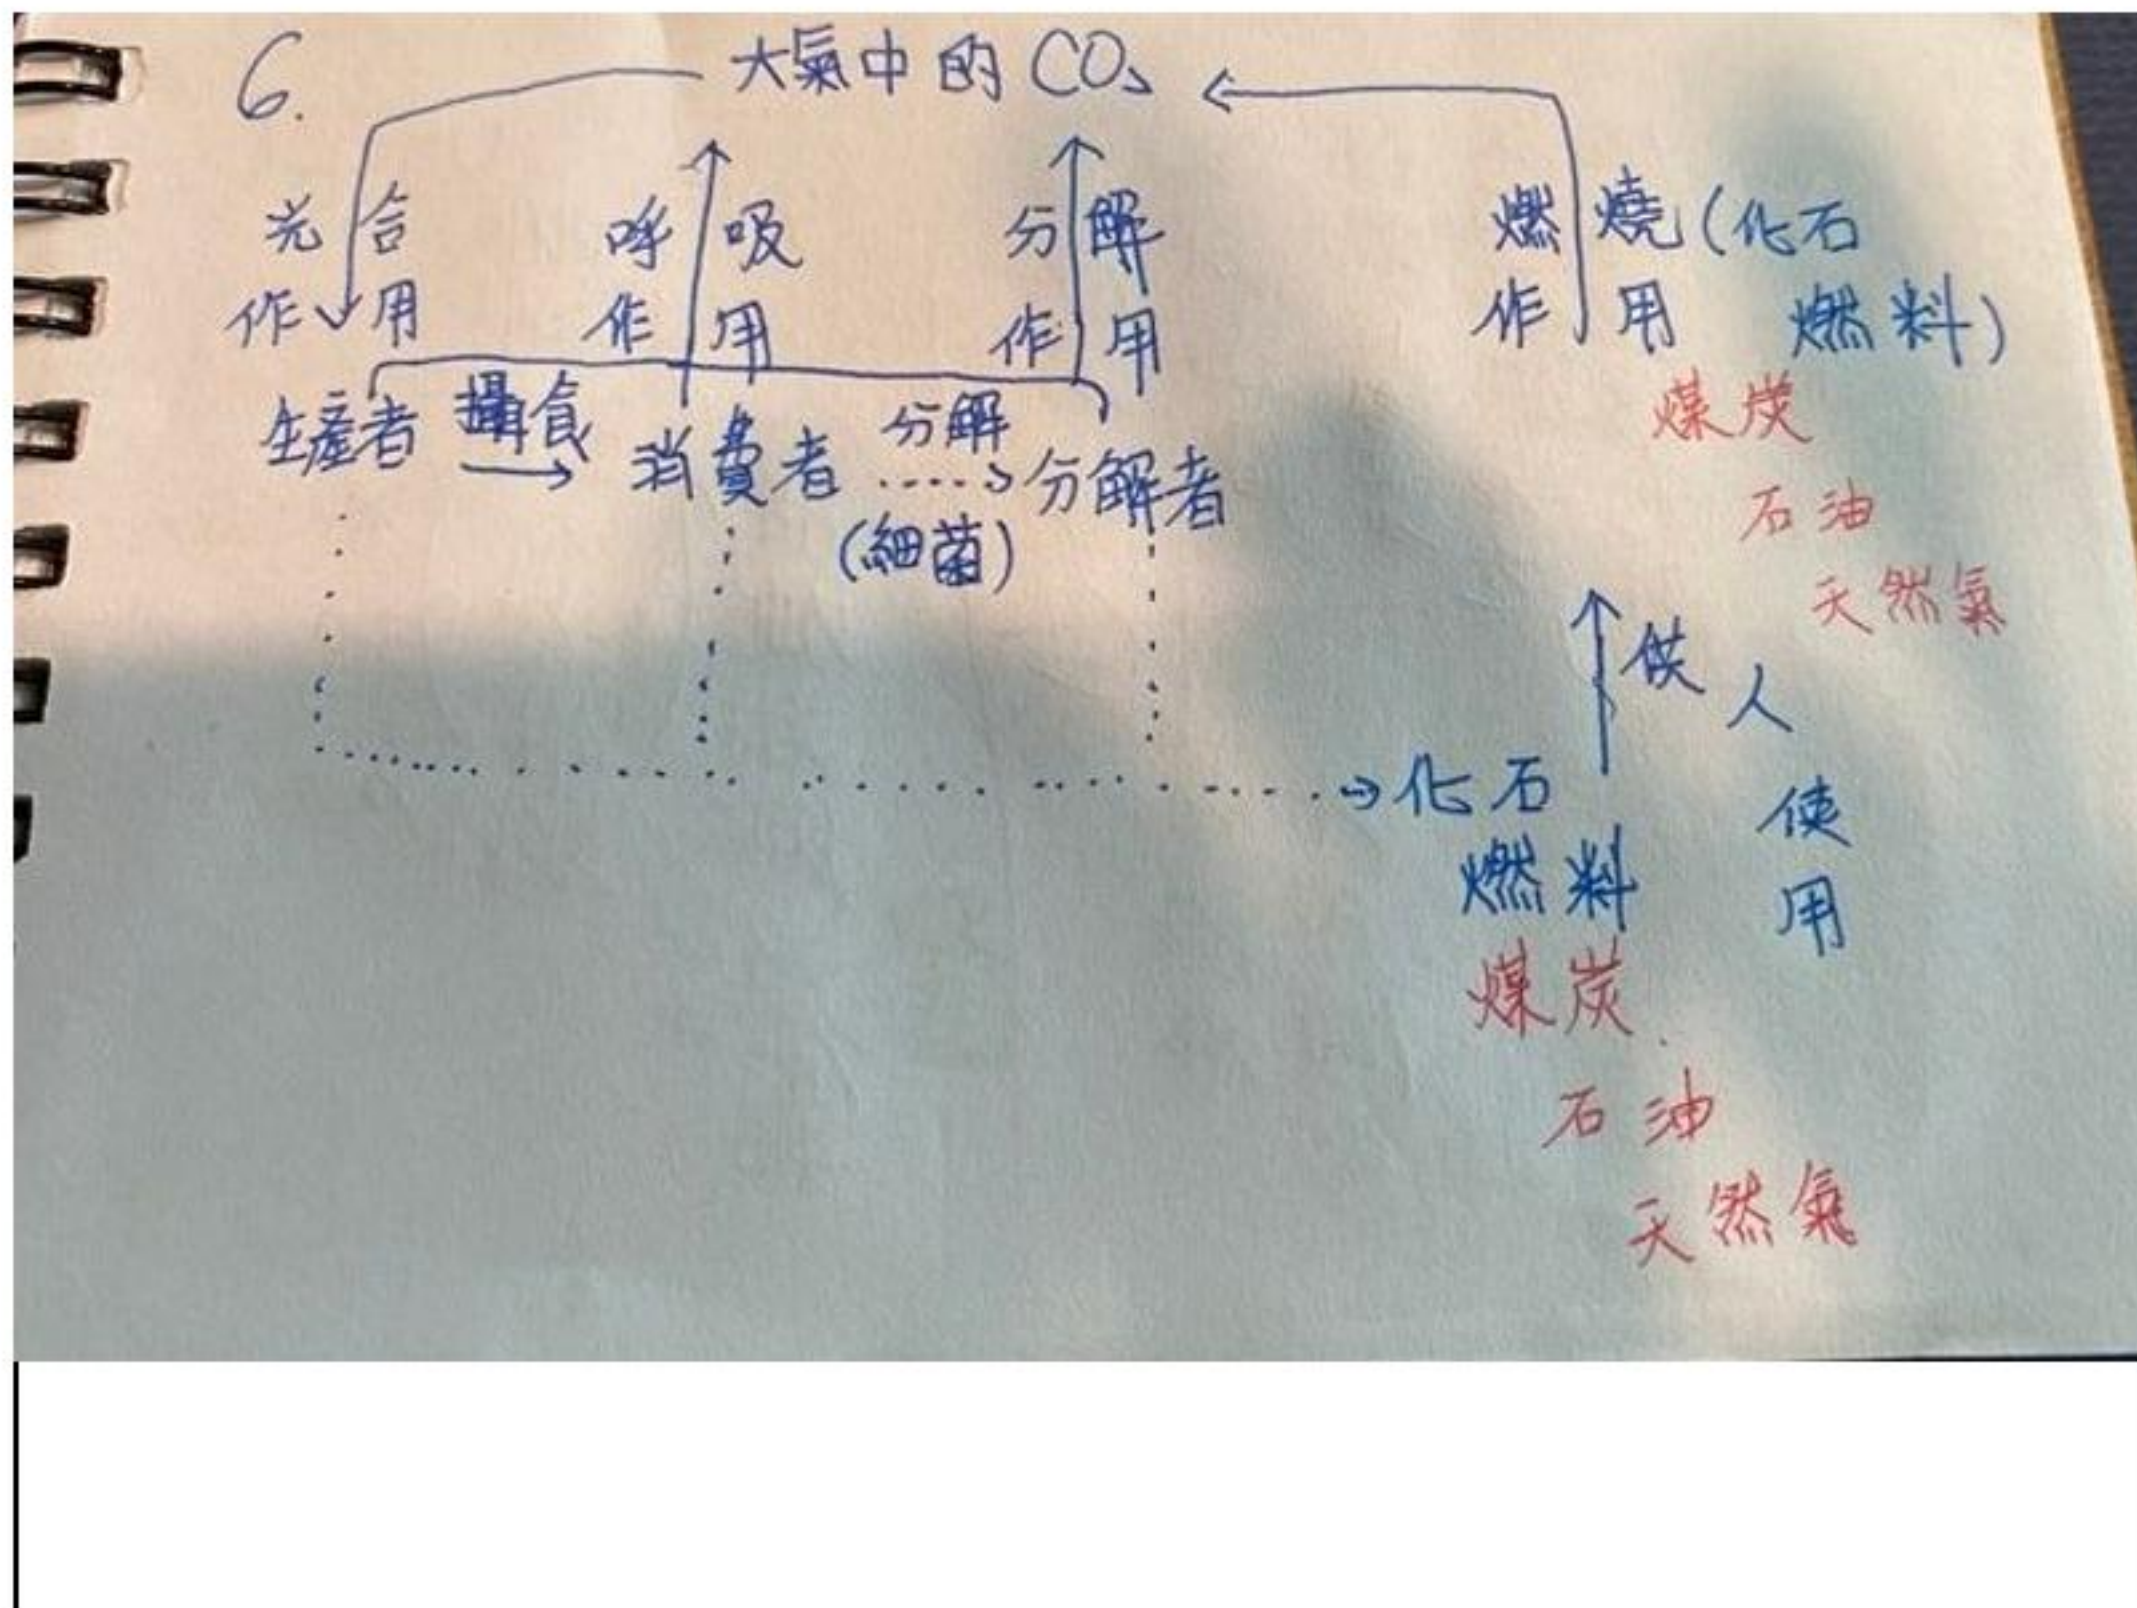 6.
大氣中的CO₂
光合作用
呼吸作用
分解作用
燃燒作用(化石燃料)
煤炭
石油
天然氣
生產者
攝食
消費者
分解
(細菌)
分解者
供人使用
化石燃料
煤炭
石油
天然氣